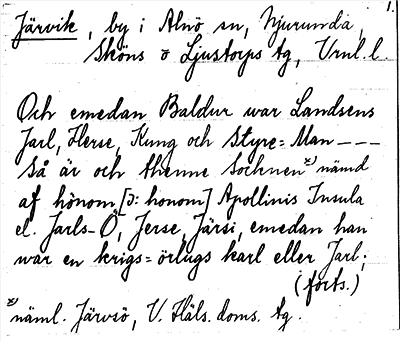 1.
Järvik, by i Alnö sn, Njurunda,
Sköns o Ljustorps tg, Vrnl. l.
Och emedan Baldur war Landsens
Jarl, Herse, Kung och Styre=Man ---
Så är och thenne Sochnen x) nämd
af hönom [ɔ: honom] Apollinis Insula
el. Jarls-Ö, Jerse, Järsi, emedan han
war en krigs= örlugs karl eller Jarl;
(forts.)
x) näml. Järvsö, V. Häls. doms. tg.